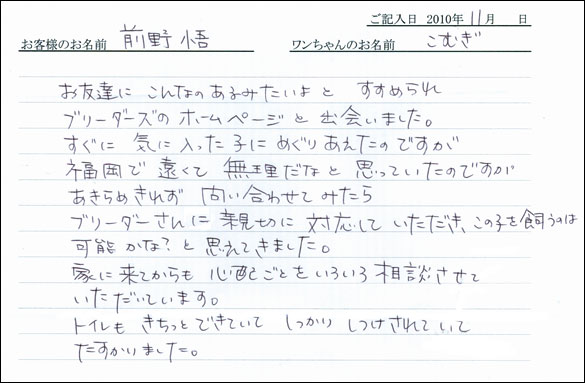 ご記入日 2010年 11月 日
お客様のお名前 前野 悟 ワンちゃんのお名前 こむぎ
お友達に こんなのあるみたいよ と すすめられ
ブリーダーズの ホームページと 出会いました。
すぐに 気に入った子に めぐりあえたの ですが
福岡で 遠くて 無理だなと 思っていたのですが
あきらめきれず 問い合わせて みたら
ブリーダーさんに 親切に 対応して いただき、この子を飼うのは
可能かな?と 思えてきました。
家に来てからも 心配ごとを いろいろ 相談させて
いただいています。
トイレも きちっと できていて しっかり しつけされて いて
たすかりました。